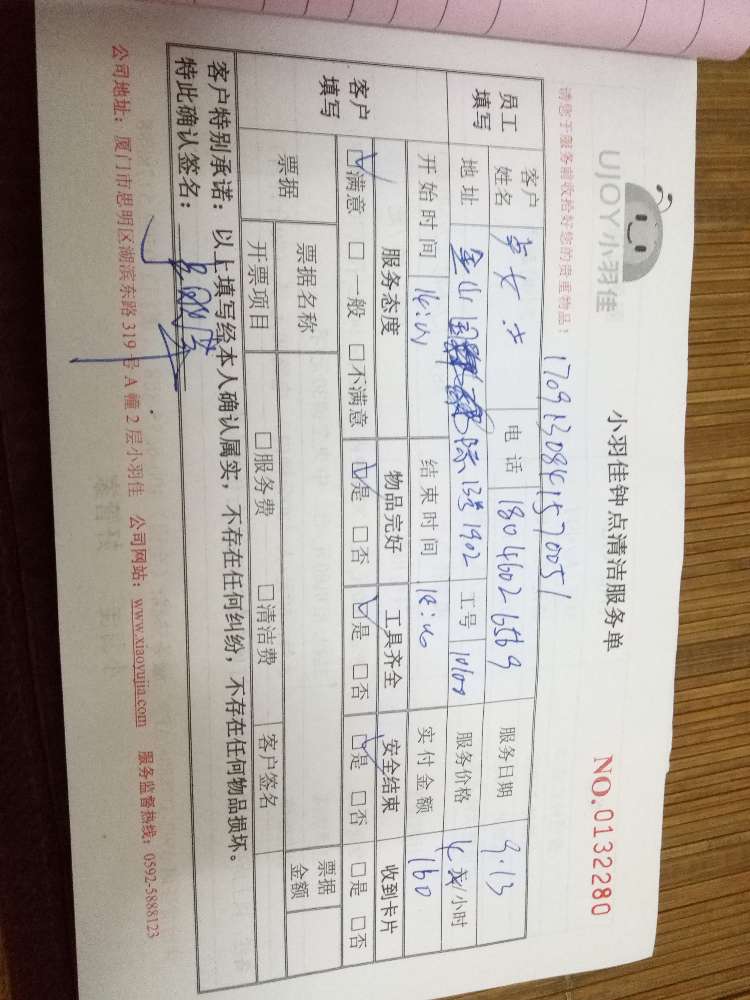 UJOY小羽佳
小羽佳钟点清洁服务单
NO.0132280
请您于服务前收拾好您的贵重物品!
1709130841570051
员工填写
客户姓名
女士
电话
18046026569
服务日期
9.13
地址
金山国际13号1902
工号
服务价格
/小时
开始时间
结束时间
实付金额
160
客户填写
服务态度
物品完好
工具齐全
安全结束
收到卡片
☑满意 □一般 □不满意
☑是 □否
☑是 □否
☑是 □否
□是 □否
票据
票据名称
票据金额
开票项目
□服务费 □清洁费
客户签名
客户特别承诺:以上填写经本人确认属实,不存在任何纠纷,不存在任何物品损坏。
特此确认签名:
公司地址:厦门市思明区湖滨东路319号A幢2层小羽佳 公司网站:www.xiaoyujia.com 服务监督热线:0592-5888123